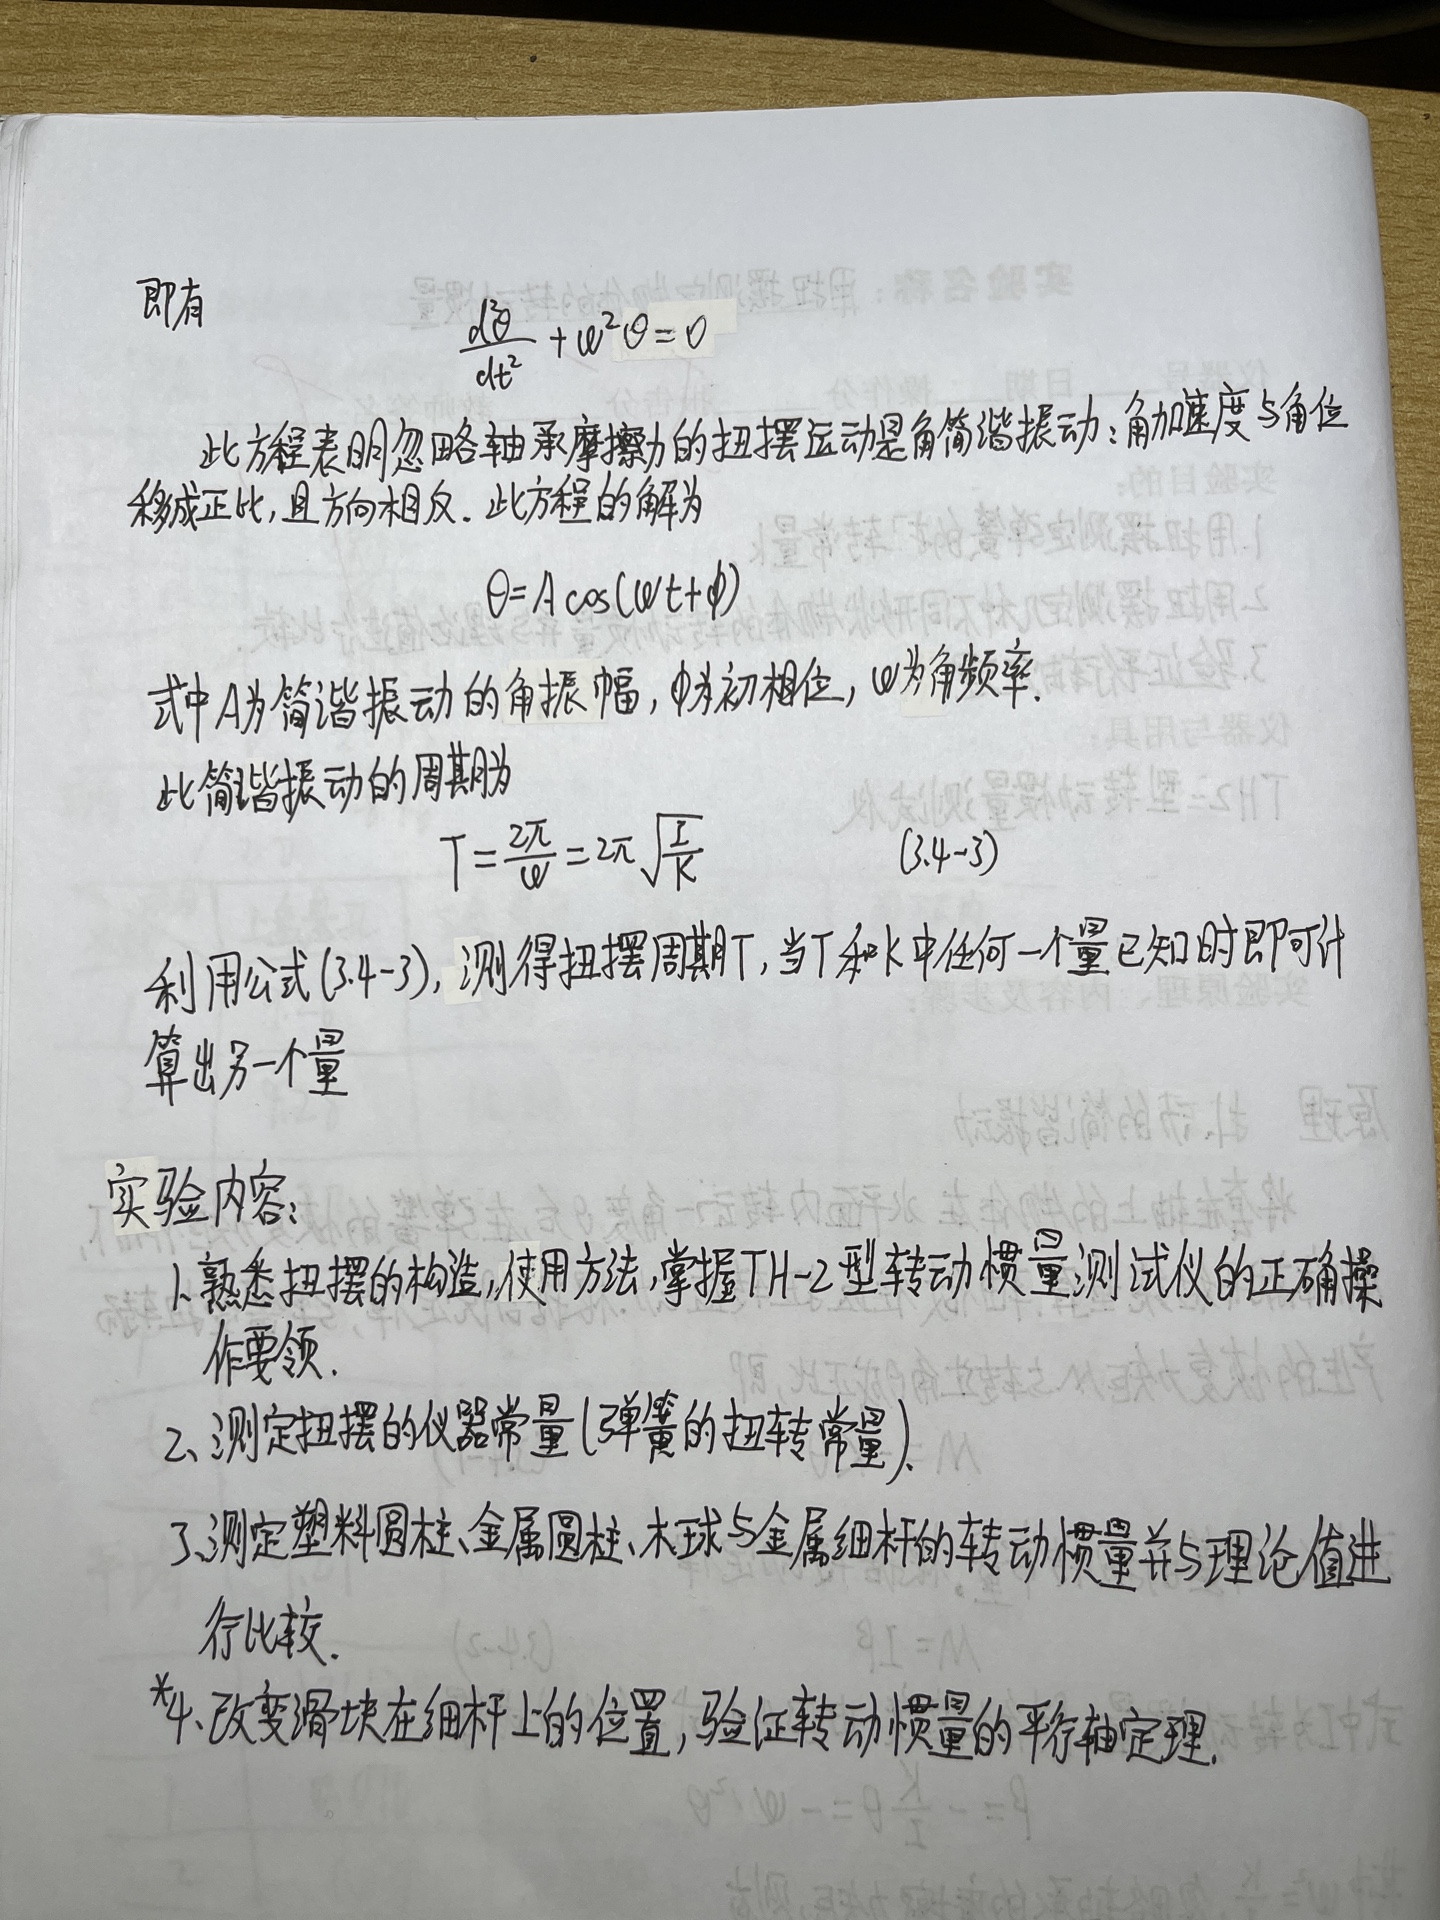 即有
d²θ/dt² + ω²θ = 0
此方程表明忽略轴承摩擦力的扭摆运动是角简谐振动；角加速度与角位
移成正比，且方向相反．此方程的解为
θ = A cos(ωt+φ)
式中A为简谐振动的角振幅，φ为初相位，ω为角频率．
此简谐振动的周期为
T = 2π/ω = 2π√(I/K) (3.4-3)
利用公式(3.4-3)，测得扭摆周期T，当T和K中任何一个量已知时即可计
算出另一个量
实验内容：
1、熟悉扭摆的构造，使用方法，掌握TH-2型转动惯量测试仪的正确操
作要领．
2、测定扭摆的仪器常量(弹簧的扭转常量)．
3、测定塑料圆柱、金属圆柱、木球与金属细杆的转动惯量并与理论值进
行比较．
*4、改变滑块在细杆上的位置，验证转动惯量的平行轴定理．